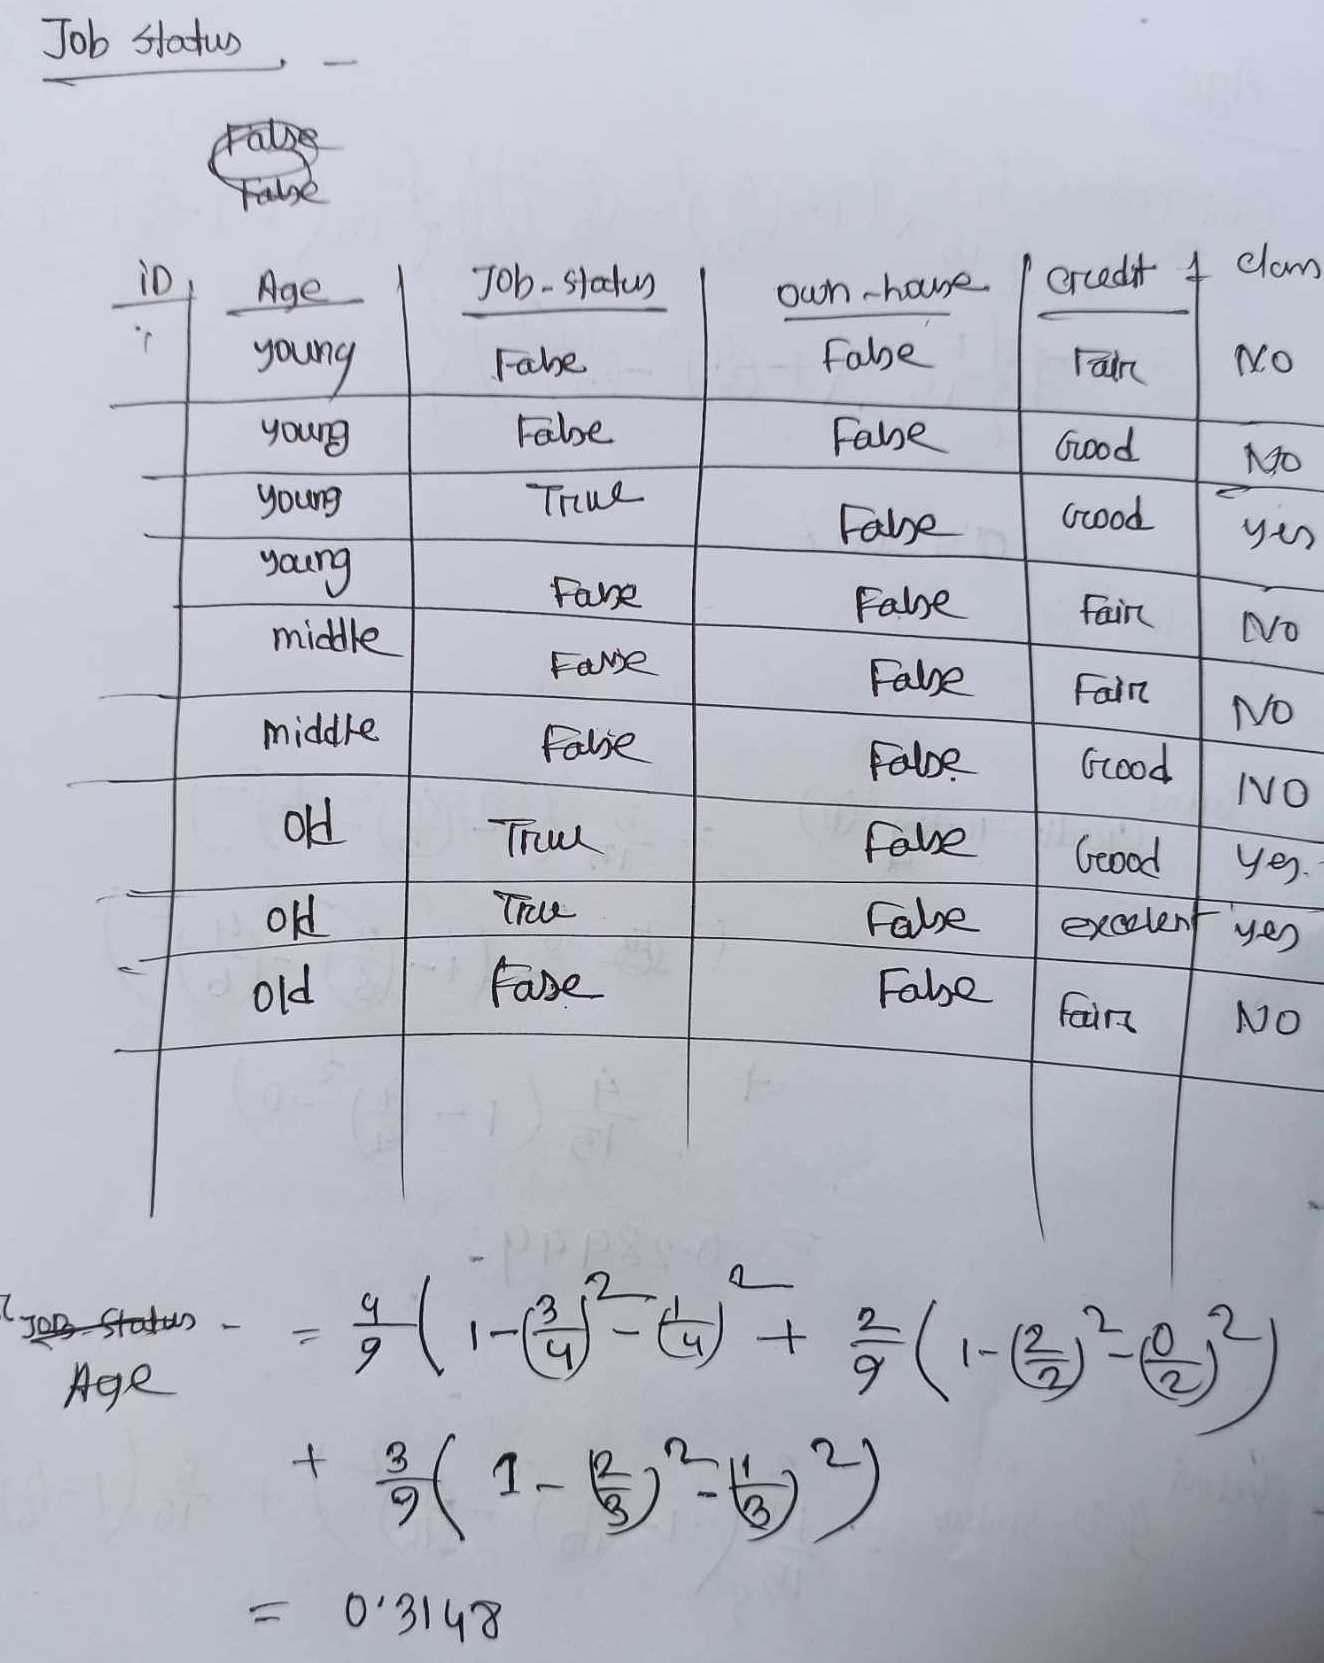 Job status
False
False
iD Age Job-status own-house Credit Class
1 young False False Fair NO
young False False Good NO
young True False Good yes
young False False Fair NO
middle False False Fair NO
middle False False Good NO
old True False Good yes.
old True False excelent yes
old False False fair NO
Job-Status - = 4/9 (1-(3/4)²-(1/4)² + 2/9 (1-(2/2)²-(0/2)²)
Age
+ 3/9 (1-(2/3)²-(1/3)²)
= 0.3148